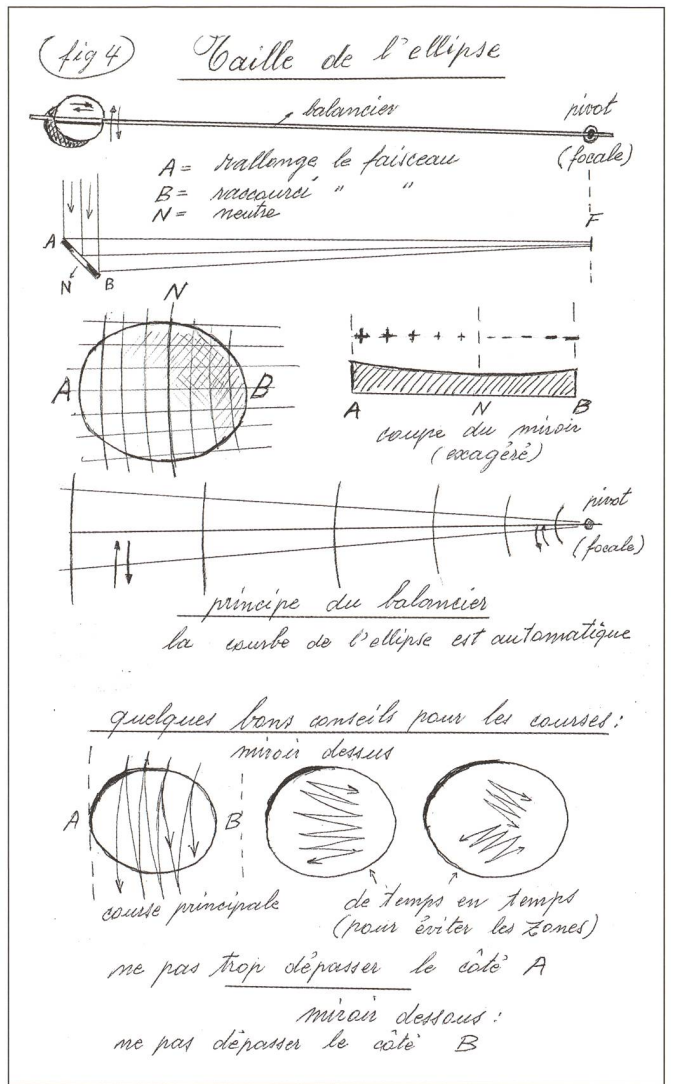 (fig 4) Taille de l'ellipse
balancier
pivot
(focale)
A = rallonge le faisceau
B = raccourci " "
N = neutre
F
A
N B
N
A B
+ + + + + - - - - - -
A N B
coupe du miroir
(exagéré)
pivot
(focale)
principe du balancier
la courbe de l'ellipse est automatique
quelques bons conseils pour les courses :
miroir dessus
A B
course principale
de temps en temps
(pour éviter les zones)
ne pas trop dépasser le côté A
miroir dessous :
ne pas dépasser le côté B